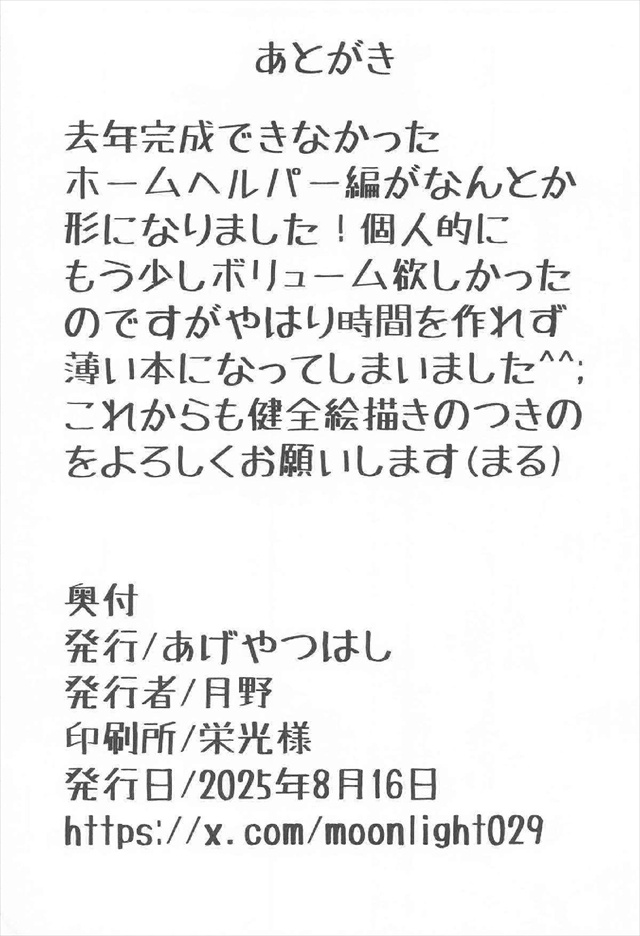 あとがき
去年完成できなかった
ホームヘルパー編がなんとか
形になりました！個人的に
もう少しボリューム欲しかった
のですがやはり時間を作れず
薄い本になってしまいました^^;
これからも健全絵描きのつきの
をよろしくお願いします(まる)
奥付
発行/あげやつはし
発行者/月野
印刷所/栄光様
発行日/2025年8月16日
https://x.com/moonlight029